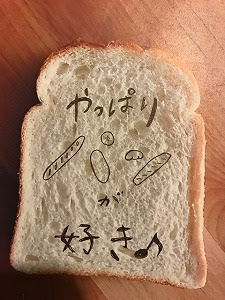 やっぱり
が
好き♪